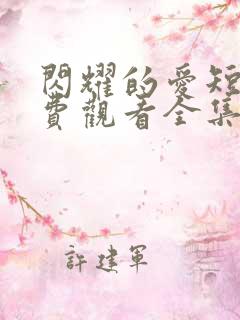 閃耀的愛短
費觀看全集
許建軍